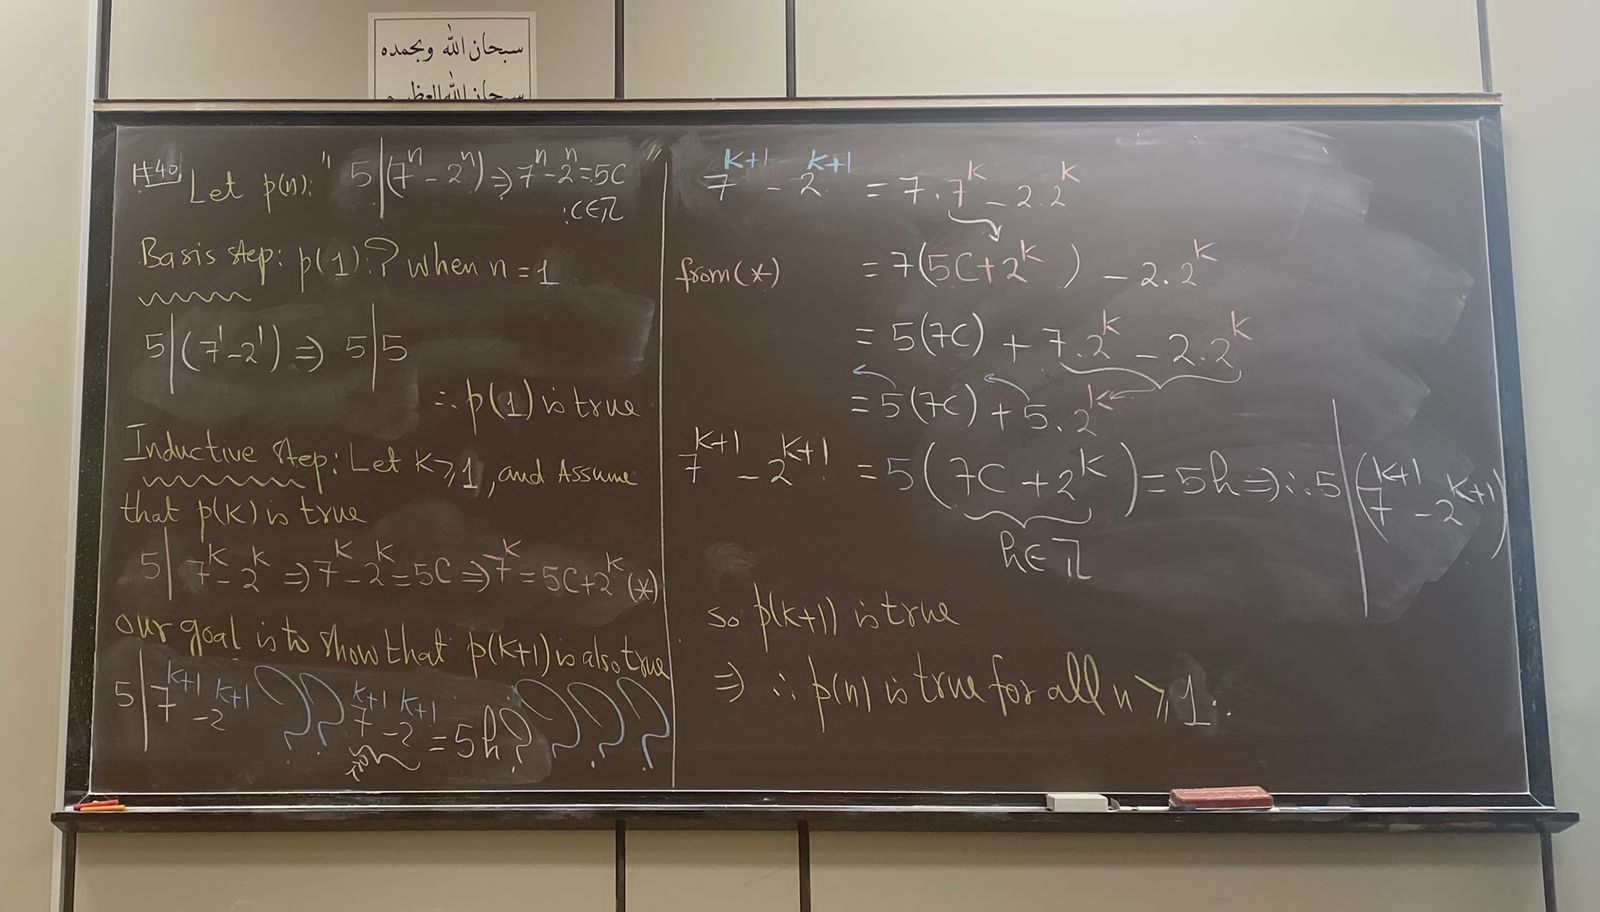 سبحان الله وبحمده
سبحان الله العظيم
#40 Let p(n): " 5|(7^n - 2^n) ⇒ 7^n - 2^n = 5C "
: C∈ℤ
Basis step: p(1)? when n = 1
5|(7^1 - 2^1) ⇒ 5|5
∴ p(1) is true
Inductive step: Let K ≥ 1, and Assume
that p(K) is true
5| 7^K - 2^K ⇒ 7^K - 2^K = 5C ⇒ 7^K = 5C + 2^K (*)
our goal is to show that p(K+1) is also true
5| 7^{K+1} - 2^{K+1} ?? 7^{K+1} - 2^{K+1} = 5h? ???
7^{K+1} - 2^{K+1} = 7 . 7^K - 2 . 2^K
from (*) = 7(5C + 2^K) - 2 . 2^K
= 5(7C) + 7 . 2^K - 2 . 2^K
= 5(7C) + 5 . 2^K
7^{K+1} - 2^{K+1} = 5(7C + 2^K) = 5h ⇒ ∴ 5|(7^{K+1} - 2^{K+1})
h∈ℤ
so p(k+1) is true
⇒ ∴ p(n) is true for all n ≥ 1.